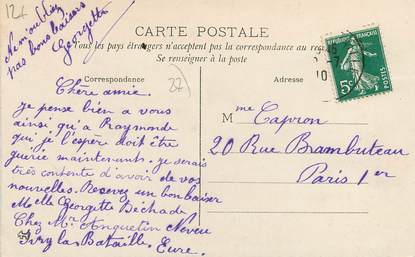 124
N'en oubliez
pas bons baisers
Georgette
CARTE POSTALE
Tous les pays étrangers n'acceptent pas la correspondance au recto
Se renseigner à la poste
Correspondance
Adresse
22)
Chère amie.
je pense bien a vous
ainsi qu'a Raymonde
qui je l'espère doit être
guérie maintenant. je serais
très contente d'avoir de vos
nouvelles. Recevez un bon baiser
Melle Georgette Béchade
Chez Mr Anquetin Neveu
Ivry la Bataille. Eure.
Mme Capron
20 Rue Brambuteau
Paris 1er
5c
POSTES
10